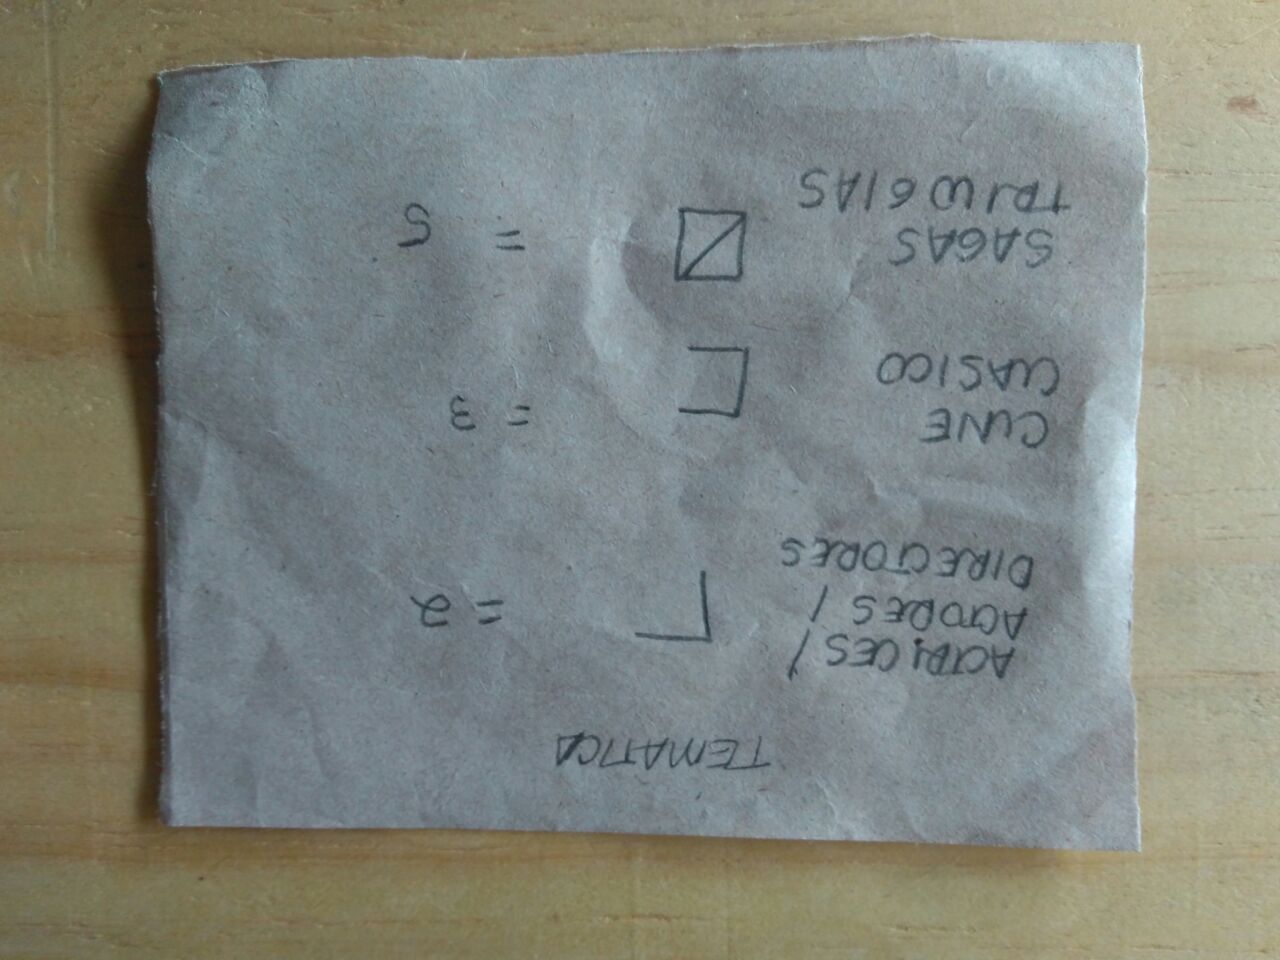 TEMATICA
ACTRICES /
ACTORES /
DIRECTORES
= 2
CINE
CLASICO
= 3
SAGAS
TRILOGIAS
= 5